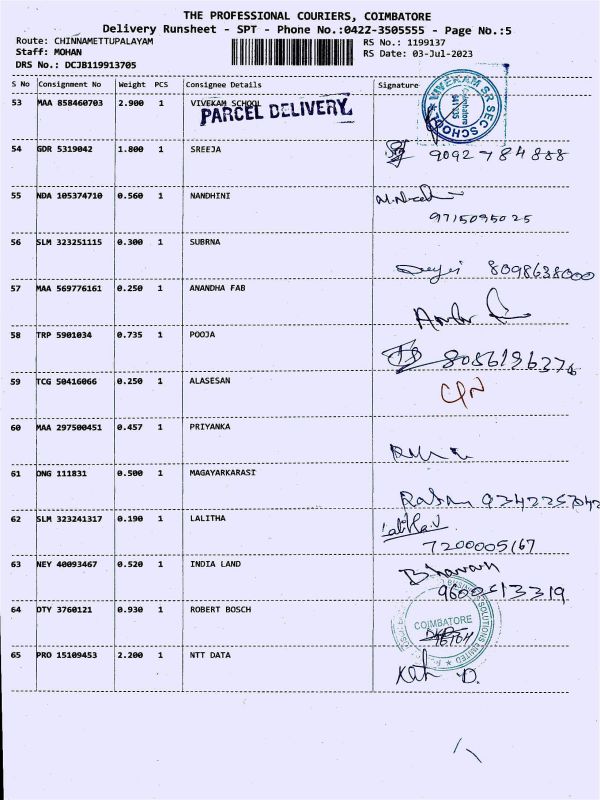 THE PROFESSIONAL COURIERS, COIMBATORE
Delivery Runsheet - SPT - Phone No.:0422-3505555 - Page No.:5
Route: CHINNAMETTUPALAYAM
RS No.: 1199137
Staff: MOHAN
RS Date: 03-Jul-2023
DRS No.: DCJB119913705
S No Consignment No Weight PCS Consignee Details Signature
53 MAA 858460703 2.900 1 VIVEKAM SCHOOL
PARCEL DELIVERY
VIVEKAM SR SEC SCHOOL
54 GDR 5319042 1.800 1 SREEJA
9092784888
55 NDA 105374710 0.560 1 NANDHINI
9715095025
56 SLM 323251115 0.300 1 SUBRNA
8098638000
57 MAA 569776161 0.250 1 ANANDHA FAB
58 TRP 5901034 0.735 1 POOJA
8086196376
59 TCG 50416066 0.250 1 ALASESAN
60 MAA 297500451 0.457 1 PRIYANKA
61 ONG 111831 0.500 1 MAGAYARKARASI
62 SLM 323241317 0.190 1 LALITHA
Lalitha.V
7200005167
63 NEY 40093467 0.520 1 INDIA LAND
Bhavan
9600513319
64 DTY 3760121 0.930 1 ROBERT BOSCH
COIMBATORE
65 PRO 15109453 2.200 1 NTT DATA